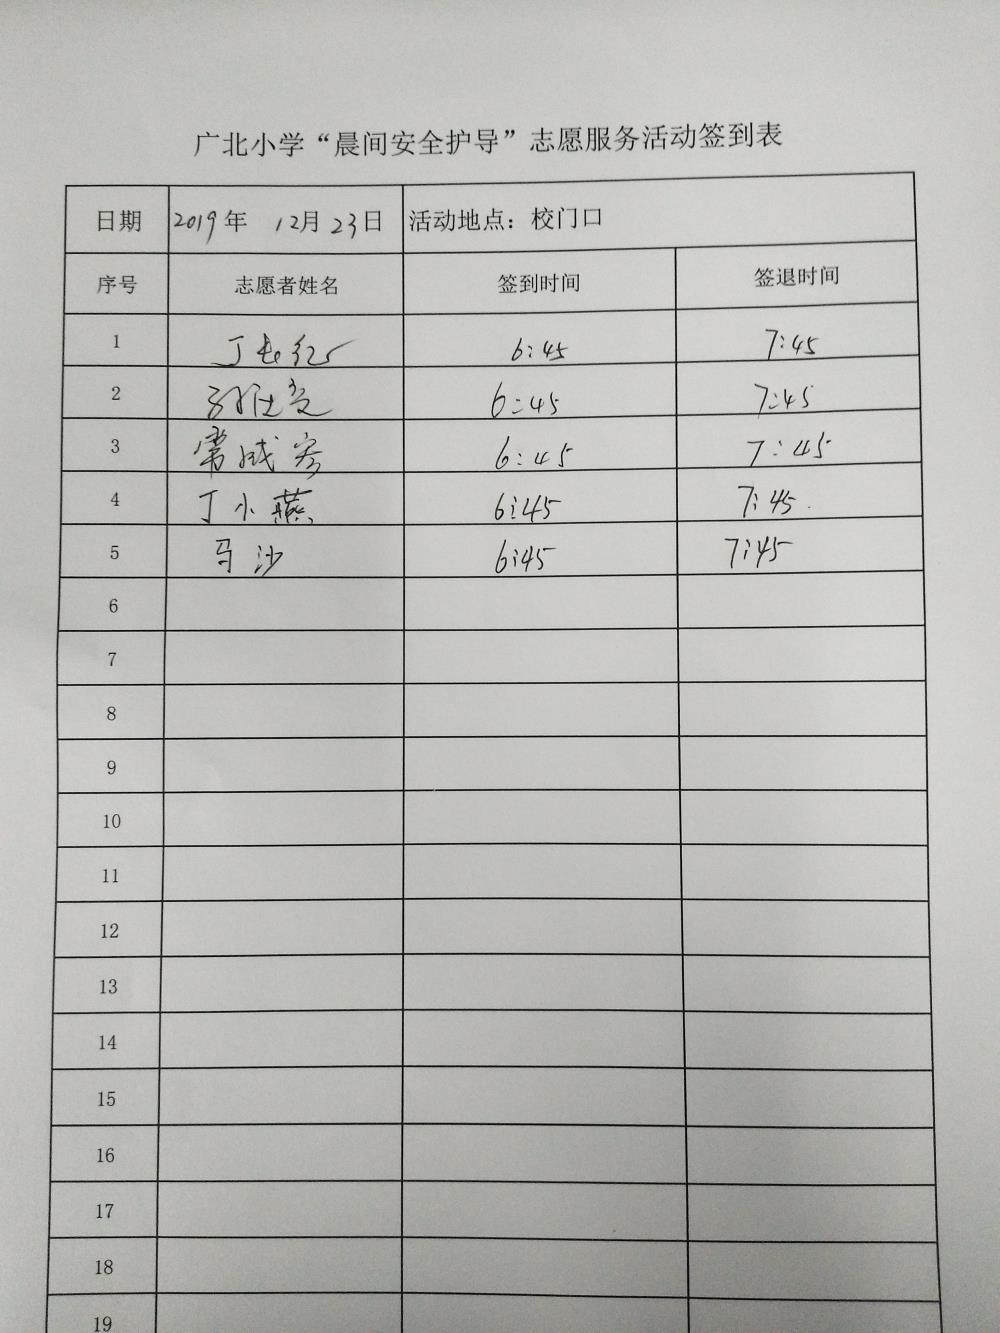 广北小学“晨间安全护导”志愿服务活动签到表
日期 2019年 12月23日 活动地点：校门口
序号 志愿者姓名 签到时间 签退时间
1 丁 红 6:45 7:45
2 6:45 7:45
3 常成 6:45 7:45
4 丁小燕 6:45 7:45
5 马沙 6:45 7:45
6
7
8
9
10
11
12
13
14
15
16
17
18
19